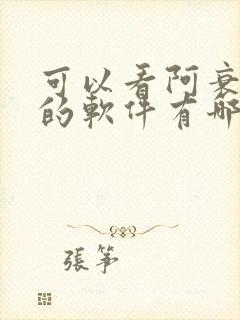 可以看阿衰
的軟件有哪
張箏